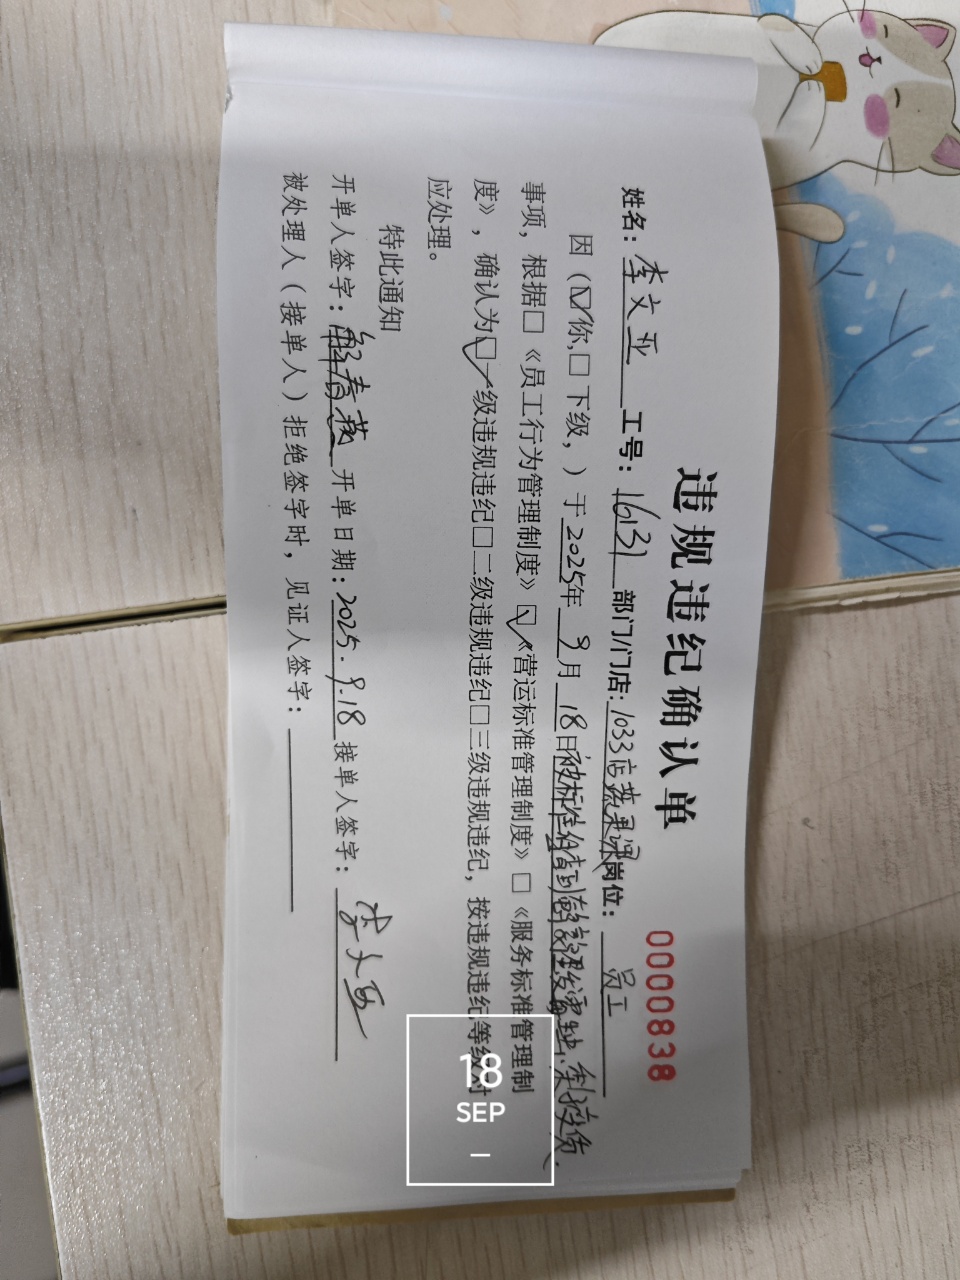 违规违纪确认单
0000838
姓名：李文亚 工号：16131 部门/门店：1033店蔬果课 岗位：员工
因（☑你，□下级，）于2025年9月18日被标准
事项，根据□《员工行为管理制度》☑《营运标准管理制度》□《服务标准管理制
度》，确认为☑一级违规违纪□二级违规违纪□三级违规违纪，按违规违纪等级对
应处理。
特此通知
开单人签字： 开单日期：2025.9.18 接单人签字：李文亚
被处理人（接单人）拒绝签字时，见证人签字：
18
SEP